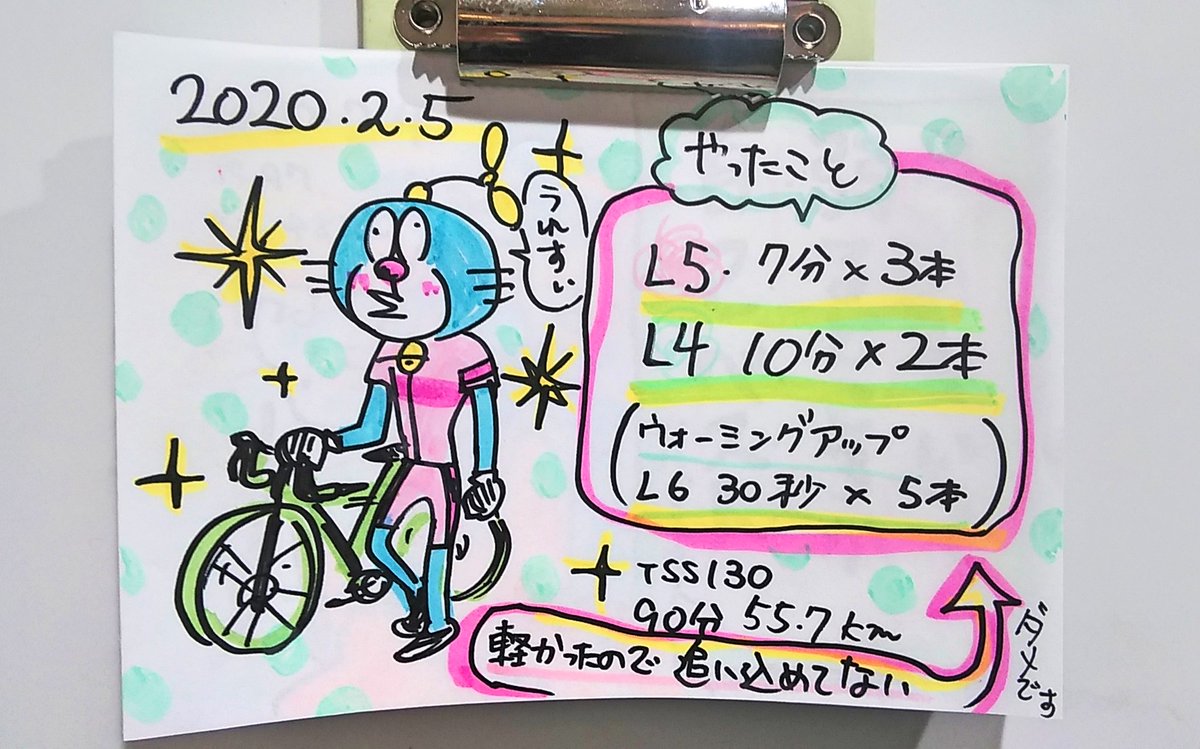 2020.2.5
うれすぃ
やったこと
L5. 7分×3本
L4 10分×2本
(ウォーミングアップ
L6 30秒 × 5本)
TSS130
90分 55.7km
軽かったので 追い込めてない
ダメです